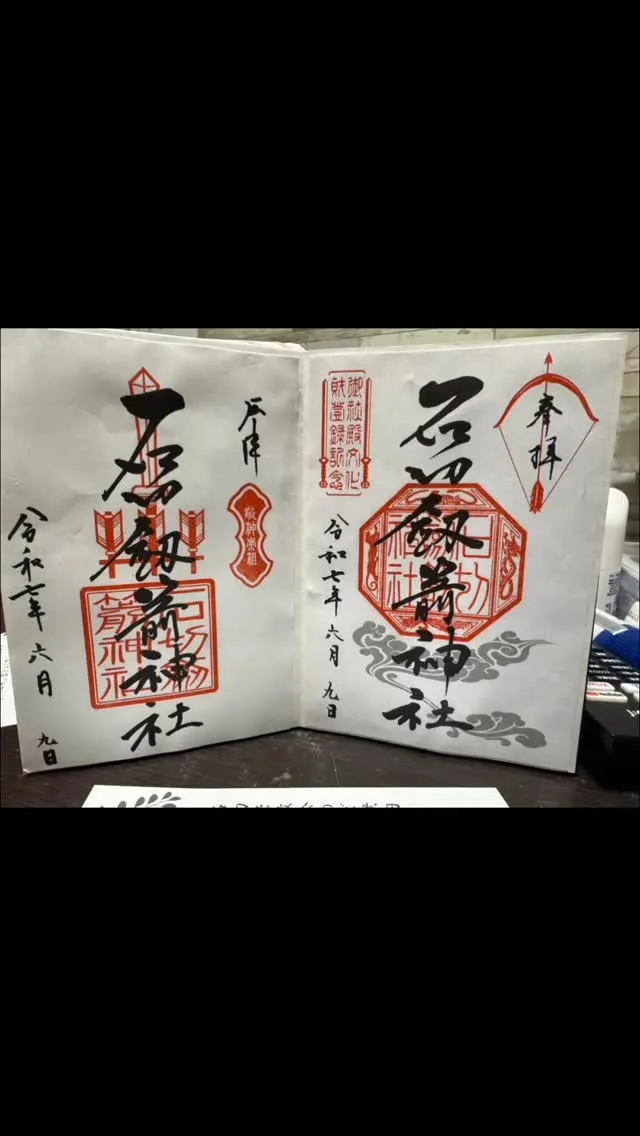 奉拝
石切劔箭神社
御社殿文化
財登録記念
石切
劔箭
神社
令和七年六月九日
奉拝
石切劔箭神社
石切劔
箭神社
令和七年六月
九日